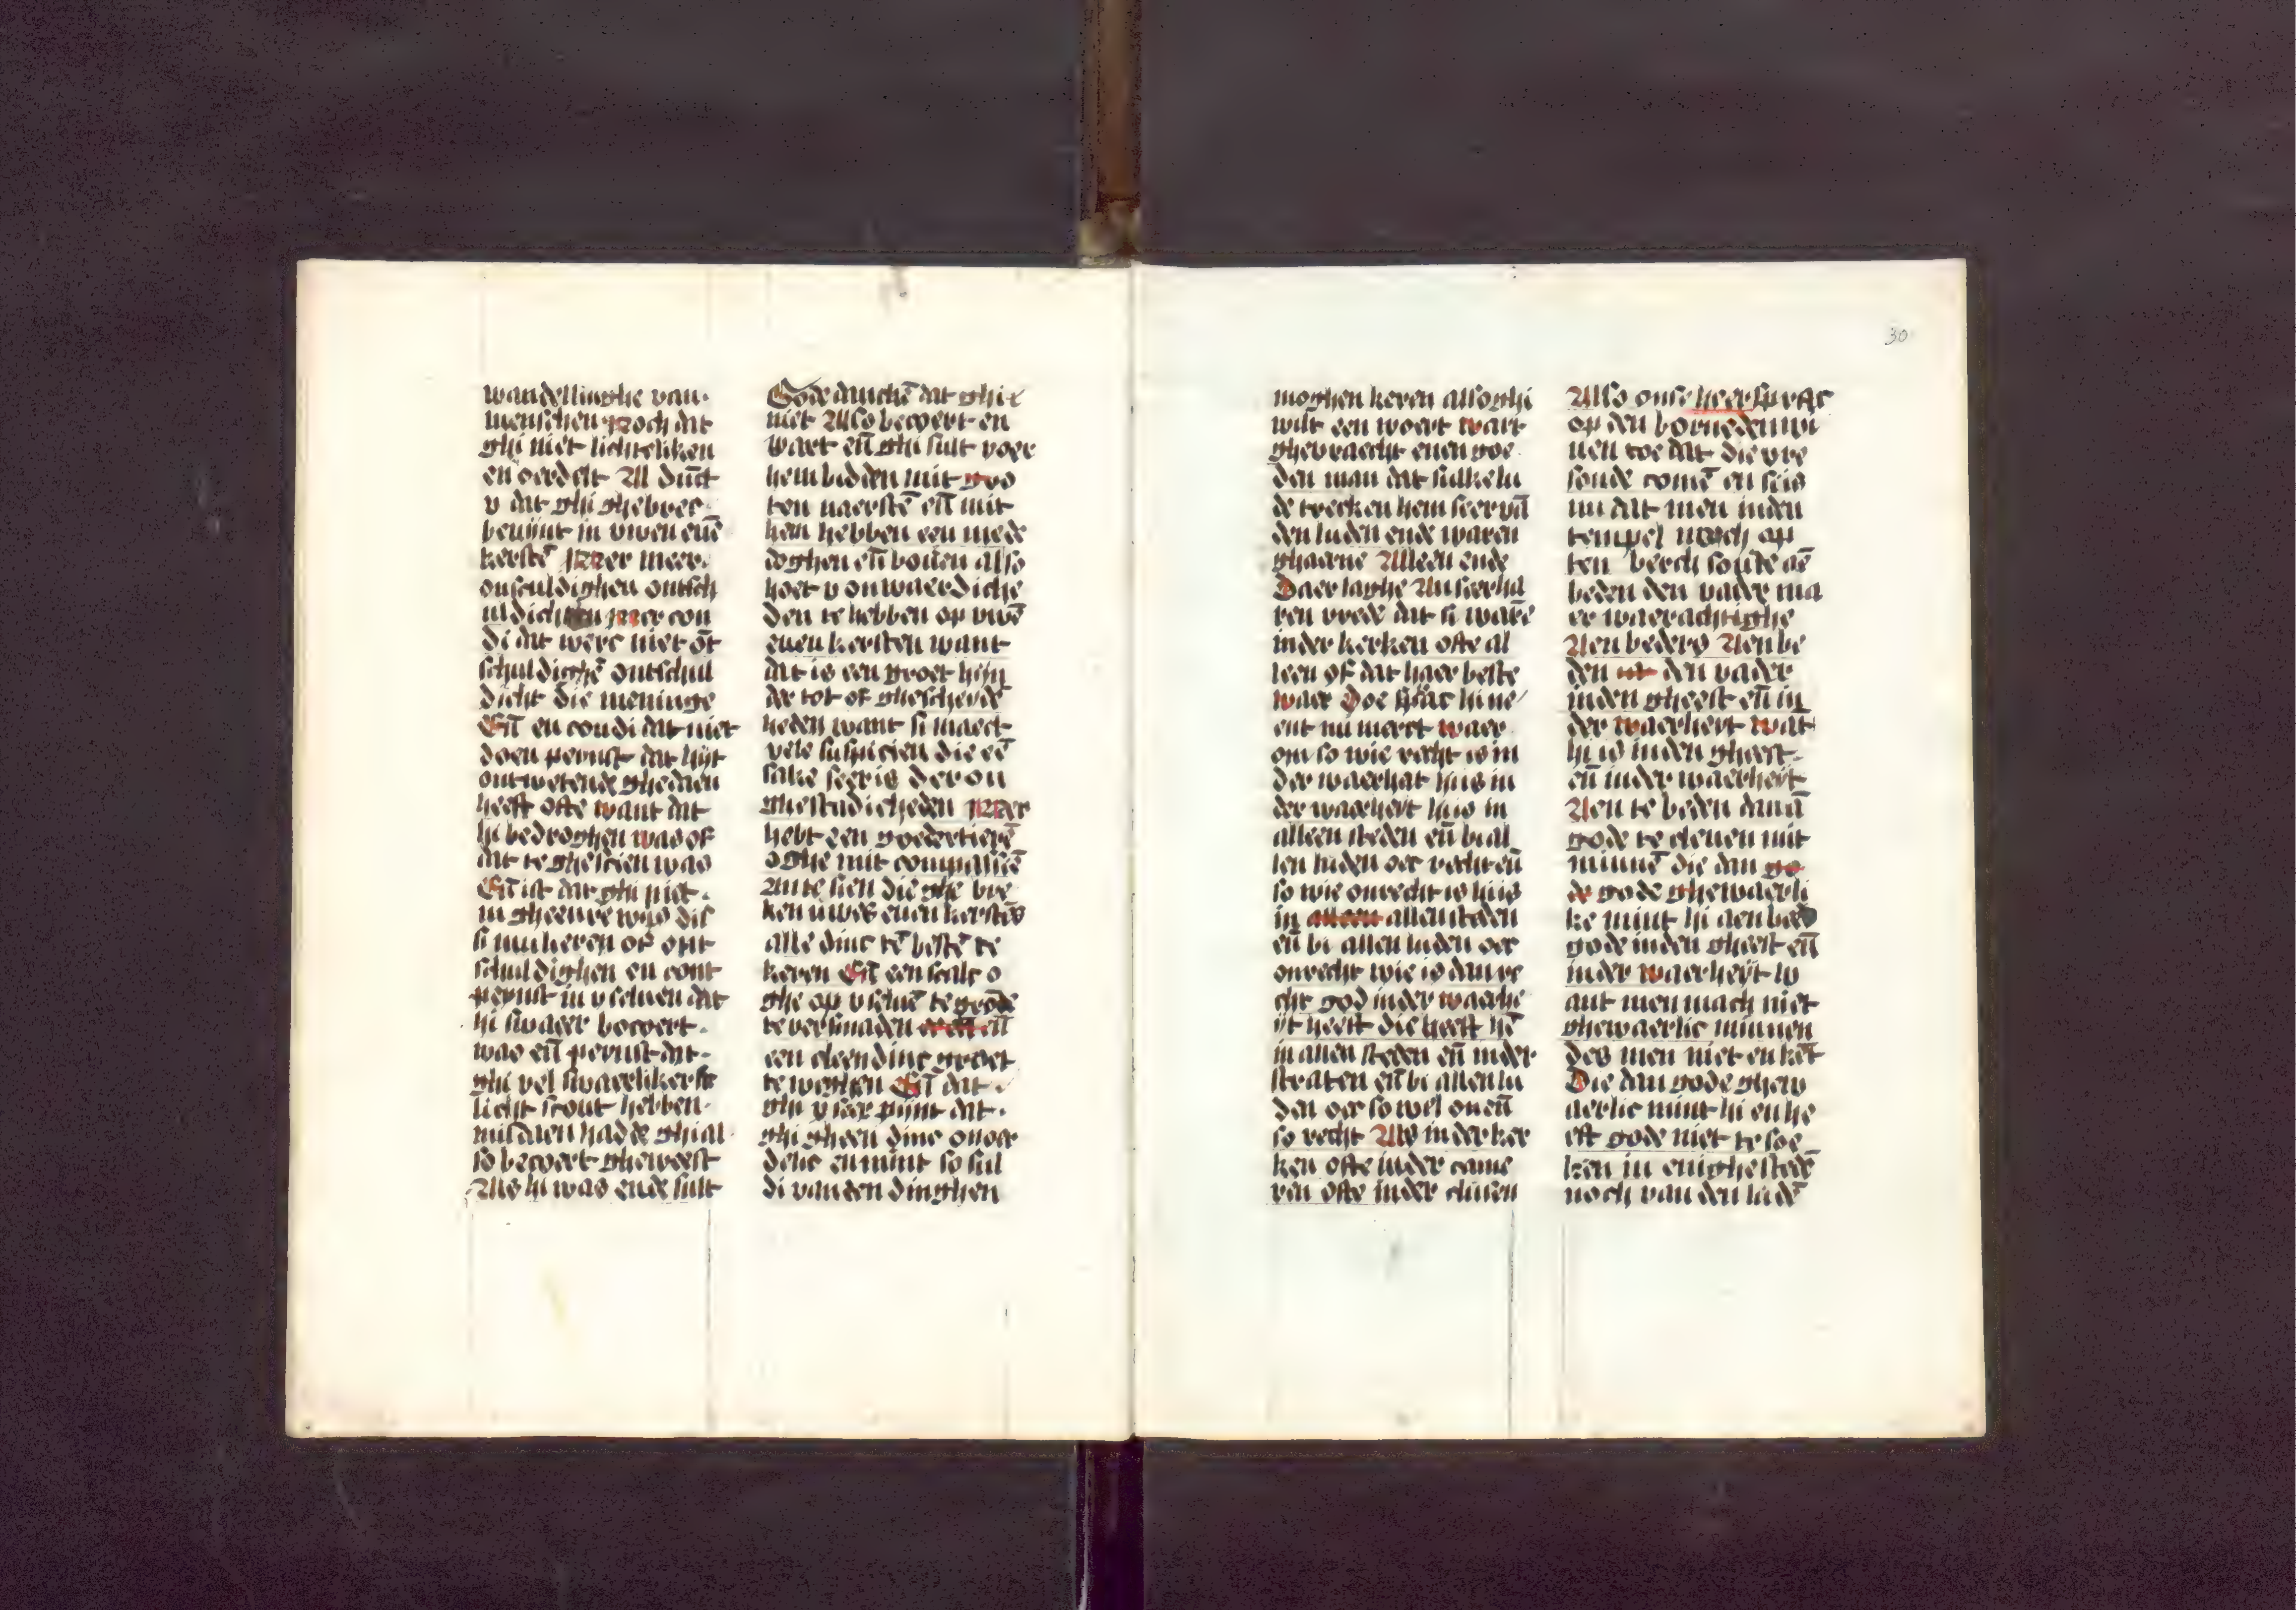 wandellinghe van
menschen Noch dat
ghi niet lichteliken
en oerdelt Al dūct
v dat ghi ghebrec
beuijnt in uwen euē
kerstē Mer meer
onsculdighen ontsch
uldichten Mer con
di dat werc niet ōt
schuldighē ontschul
dicht die meninge
Eñ en coudi dat niet
doen peynst dat hijt
ontwetende ghedaen
heeft ofte want dat
hi bedroghen was of
dat te ghescien was
Eñ ist dat ghi niet
in gheenre wijs dit
si mu keren of ont
schuldighen en cont
peynst in v seluen dat
hi swaer becoert
was eñ peynst dat
ghi vel swaerliker
licht sout hebben
misdaen hadde ghi al
so becoert gheweest
Als hi was ende sult
Gode danckē dat ghi
niet Also becoert en
waert eñ ghi sult voer
hem bidden mit gro
ten naerstē eñ mit
hem hebben een mede
doghen eñ bouen also
hoet v onwaerdiche
den te hebben op uwē
euen kersten want
dat is een groet hijn
der tot of ghescheyde
heden want si maect
vele suspicien die eē
sake seer is der on
ghestadicheden Mer
hebt een goedertierē
oghe mit compassiē
An te sien die ghe bre
ken uwes euen kerstēs
alle dinc tē bestē te
keren Eñ een scalc o
ghe op v seluē te gronde
te versmaden eñ
een cleen dinc groet
te weghen Eñ dat
ghi v seer pijnt dat
ghi gheen dinc onor
delic en mint so sul
di van den dinghen
30
moghen keren also ghi
wilt een woert wart
ghevraecht enen goe
den man dat sulke lu
de trecken hem seer vā
den luden ende waren
ghaerne Alleen ende
Daer laghe An seer ha
ren vrede dat si warē
inder kerken ofte al
leen of dat haer beste
waer Doe sprac hi ne
ent nu merct waer
om so wie recht is in
der waerhat hijs in
der waerheyt hijs in
alleen steden eñ bi al
len luden oec recht eñ
so wie onrecht is hijs
in alleen allen steden
eñ bi allen luden oec
onrecht wie is dan re
cht god inder waerhe
ijt heeft die heeft hē
in allen steden eñ inder
straten eñ bi allen lu
den oec so wel on eñ
so recht Als inder ker
ken ofte inder came
ren ofte inder clusen
Also onse heer sprac
op den bornedenwi
nen toe dat die vre
soude comē en seis
nu dat men inden
tempel noch op
ten berch soude aē
beden den vader ma
er waerachtighe
Aen beders Aen be
den den vader
inden gheest eñ in
der waerheyt wāt
hi is inden gheest
eñ inder waerheyt
Aen te beden danā
gode te cleuen mit
minnē die dan go
de gode ghewaerli
ke mint hi aen bed
gode inden gheest eñ
inder waerheyt w
ant men mach niet
ghewaerlic minnen
des men niet en kēt
Die dan gode ghew
aerlic mint hi en he
eft gode niet te soe
ken in enighe stedē
noch van den ludē